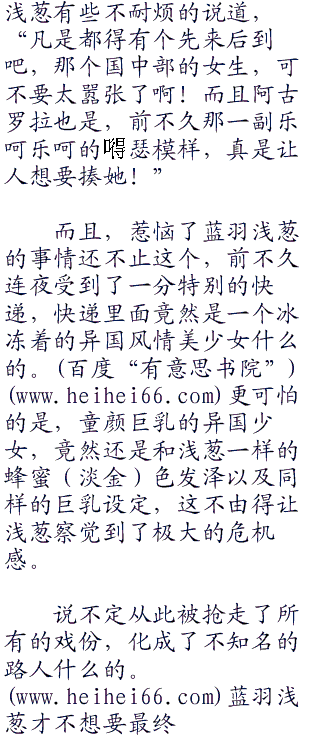 浅葱有些不耐烦的说道，
“凡是都得有个先来后到
吧，那个国中部的女生，可
不要太嚣张了啊！而且阿古
罗拉也是，前不久那一副乐
呵乐呵的嘚瑟模样，真是让
人想要揍她！”
而且，惹恼了蓝羽浅葱
的事情还不止这个，前不久
连夜受到了一分特别的快
递，快递里面竟然是一个冰
冻着的异国风情美少女什么
的。(百度“有意思书院”)
(www.heihei66.com)更可怕
的是，童颜巨乳的异国少
女，竟然还是和浅葱一样的
蜂蜜（淡金）色发泽以及同
样的巨乳设定，这不由得让
浅葱察觉到了极大的危机
感。
说不定从此被抢走了所
有的戏份，化成了不知名的
路人什么的。
(www.heihei66.com)蓝羽浅
葱才不想要最终